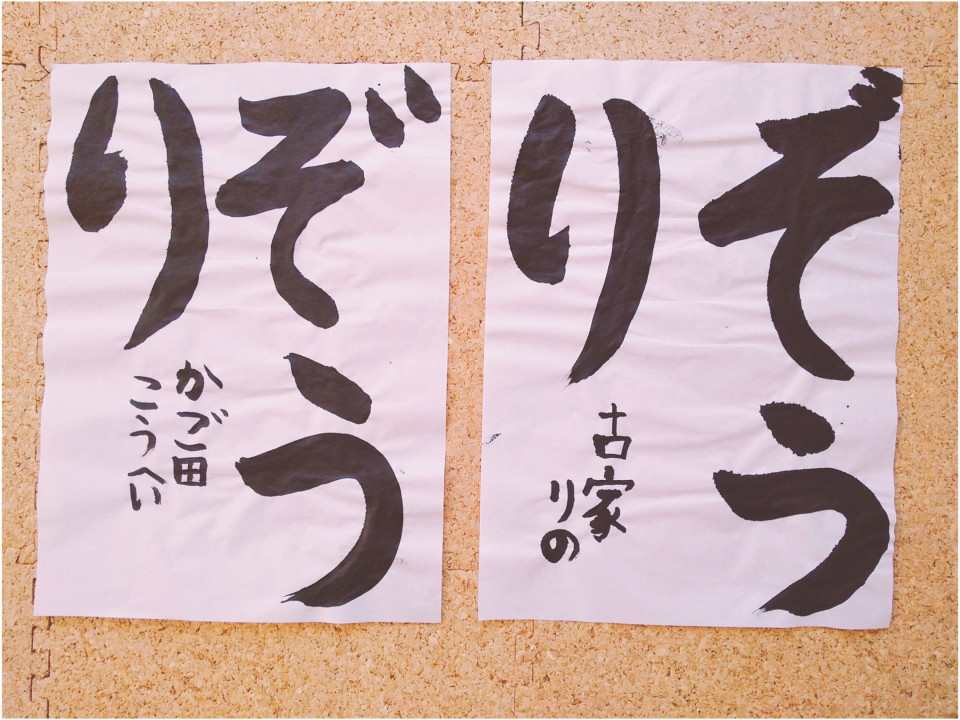 ぞう
り
かご田
こうへい
ぞう
り
古家
りの